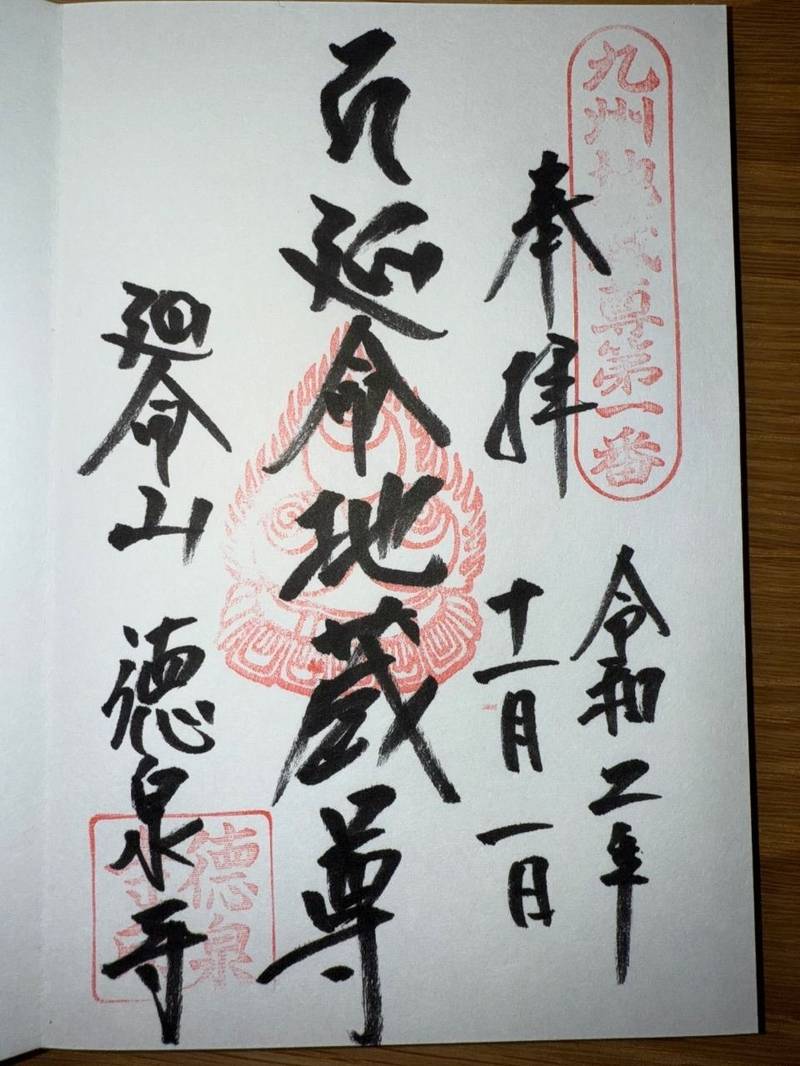 九州地蔵尊第一番
奉拝
令和二年
十一月一日
延命地蔵尊
廻命山 德泉寺
德泉